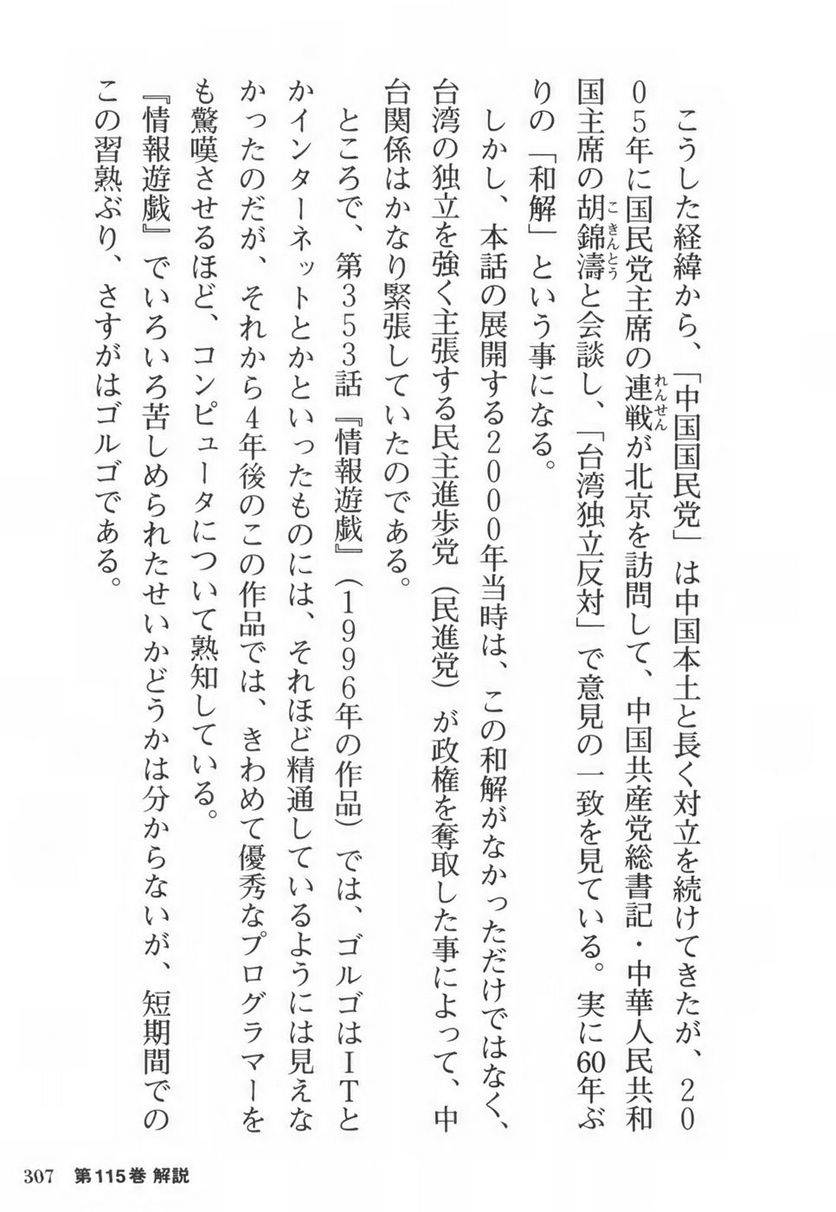 こうした経緯から、「中国国民党」は中国本土と長く対立を続けてきたが、20
05年に国民党主席の連戦が北京を訪問して、中国共産党総書記・中華人民共和
れんせん
国主席の胡錦濤と会談し、「台湾独立反対」で意見の一致を見ている。実に60年ぶ
こきんとう
りの「和解」という事になる。
しかし、本話の展開する2000年当時は、この和解がなかっただけではなく、
台湾の独立を強く主張する民主進歩党（民進党）が政権を奪取した事によって、中
台関係はかなり緊張していたのである。
ところで、第353話『情報遊戯』（1996年の作品）では、ゴルゴはITと
かインターネットとかといったものには、それほど精通しているようには見えな
かったのだが、それから4年後のこの作品では、きわめて優秀なプログラマーを
も驚嘆させるほど、コンピュータについて熟知している。
『情報遊戯』でいろいろ苦しめられたせいかどうかは分からないが、短期間での
この習熟ぶり、さすがはゴルゴである。
307 第115巻 解説